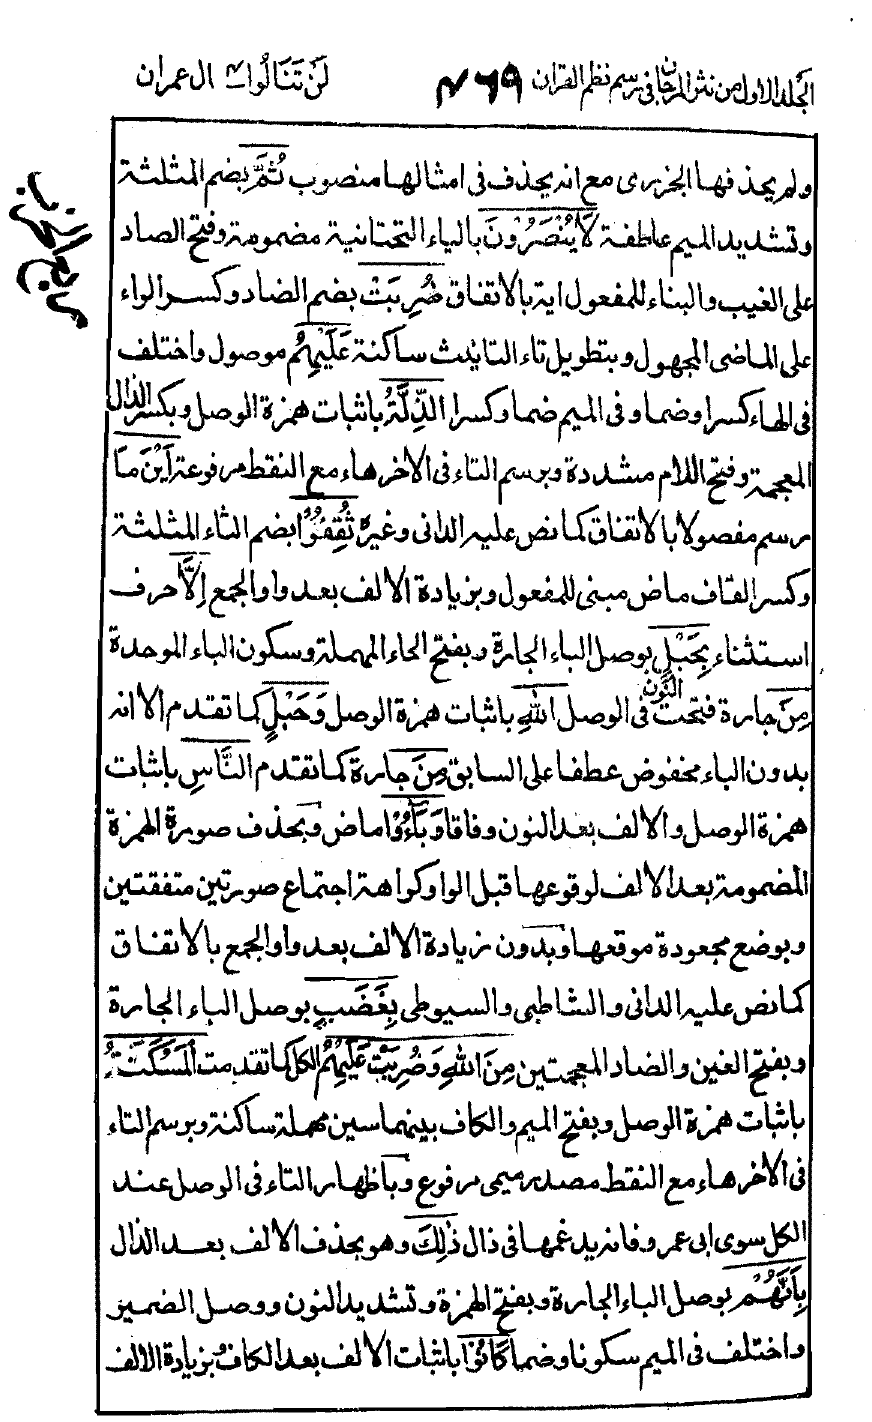 الجلد الاول من نثر المرجان فى رسم نظم القران ٤٦٩ لَنْ تَنَالُوا ٤ ال عمران
ولم يحذفها الجزرى مع انه يحذف فى امثالها منصوب ثُمَّ بضم المثلثة
وتشديد الميم عاطفة لَا يُنْصَرُوْنَ بالياء التحتانية مضمومة وفتح الصاد
على الغيب والبناء للمفعول اية بالاتفاق ضُرِبَتْ بضم الضاد وكسر الراء
على الماضى المجهول وبتطويل تاء التانيث ساكنة عَلَيْهِمُ موصول واختلف
فى الهاء كسرا وضما وفى الميم ضما وكسرا الذِّلَّةُ باثبات همزة الوصل وبكسر الذال
المعجمة وفتح اللام مشددة وبرسم التاء فى الاخر هاء مع النقط مرفوعة اَيْنَ مَا
رسم مفصولا بالاتفاق كما نص عليه الدانى وغيره ثُقِفُوْا بضم الثاء المثلثة
وكسر القاف ماض مبنى للمفعول وبزيادة الالف بعد واو الجمع اِلَّا حرف
استثناء بِحَبْلٍ بوصل الباء الجارة وبفتح الحاء المهملة وسكون الباء الموحدة
مِنَ جارة فتحت النون فى الوصل اللهِ باثبات همزة الوصل وَحَبْلٍ كما تقدم الا انه
بدون الباء مخفوض عطفا على السابق مِنَ جارة كما تقدم النَّاسِ باثبات
همزة الوصل والالف بعد النون وفاقا وَبَاءُوْا ماض وبحذف صورة الهمزة
المضمومة بعد الالف لوقوعها قبل الواو كراهة اجتماع صورتين متفقتين
وبوضع مجعودة موقعها وبدون زيادة الالف بعد واو الجمع بالاتفاق
كما نص عليه الدانى والشاطبى والسيوطى بِغَضَبٍ بوصل الباء الجارة
وبفتح الغين والضاد المعجمتين مِنَ اللهِ وَضُرِبَتْ عَلَيْهِمُ الكل كما تقدمت الْمَسْكَنَةُ
باثبات همزة الوصل وبفتح الميم والكاف بينهما سين مهملة ساكنة وبرسم التاء
فى الاخر هاء مع النقط مصدر ميمى مرفوع وباظهار التاء فى الوصل عند
الكل سوى ابى عمرو فانه يدغمها فى ذال ذٰلِكَ وهو بحذف الالف بعد الذال
بِاَنَّهُمْ بوصل الباء الجارة وبفتح الهمزة وتشديد النون ووصل الضمير
واختلف فى الميم سكونا وضما كَانُوْا باثبات الالف بعد الكاف وبزيادة الالف